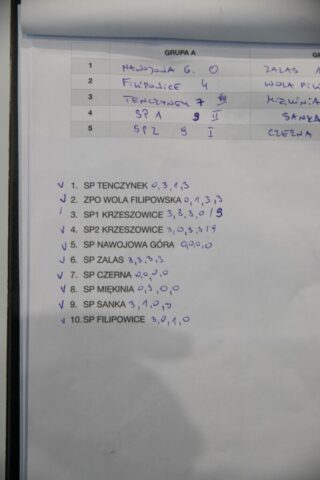 GRUPA A
1 NAWOJOWA G. 0 ZALAS 1
2 FILIPOWICE 4 WOLA FILI
3 TENCZYNEK 7 III MIĘKINIA
4 SP 1 9 II SANKA
5 SP 2 9 I CZERNA
1. SP TENCZYNEK 0,3,1,3
2. ZPO WOLA FILIPOWSKA 0,1,3,3
3. SP1 KRZESZOWICE 3,3,3,0 / 9
4. SP2 KRZESZOWICE 3,0,3,3 / 9
5. SP NAWOJOWA GÓRA 0,0,0,0
6. SP ZALAS 3,3,3,3
7. SP CZERNA 0,0,0,0
8. SP MIĘKINIA 0,3,0,0
9. SP SANKA 3,1,0,
10. SP FILIPOWICE 3,0,1,0